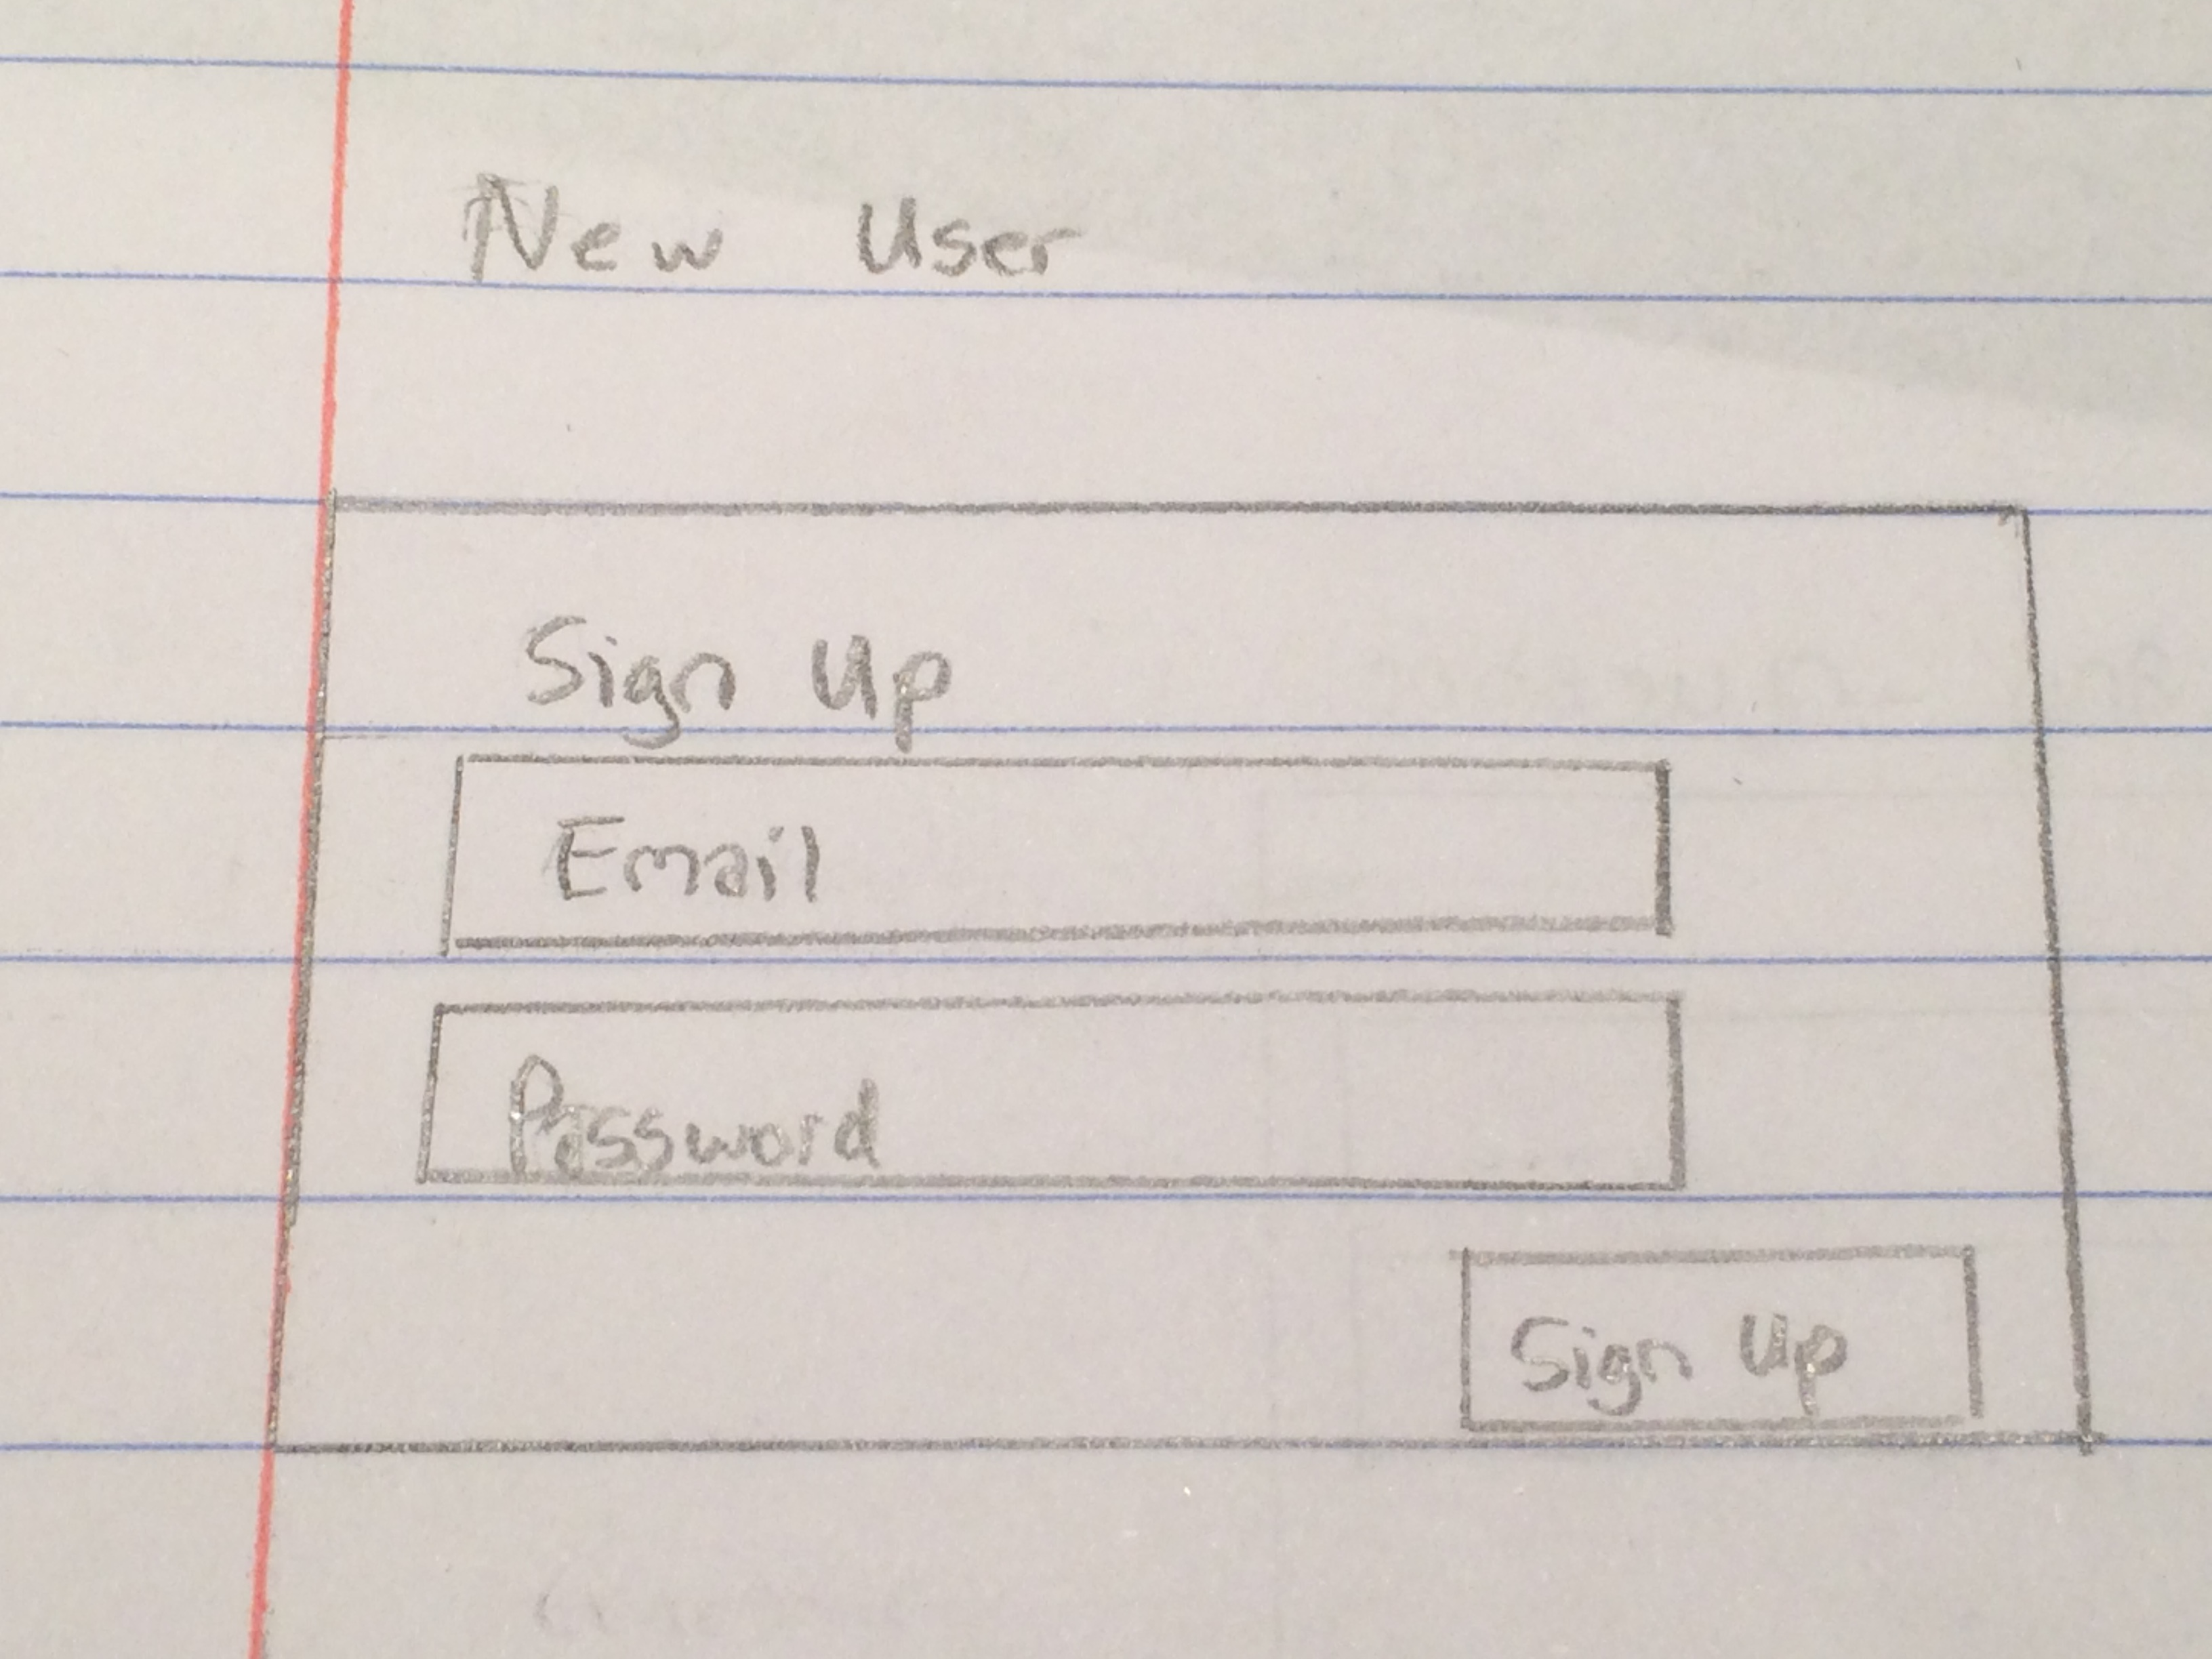 New User
Sign Up
Email
Password
Sign Up